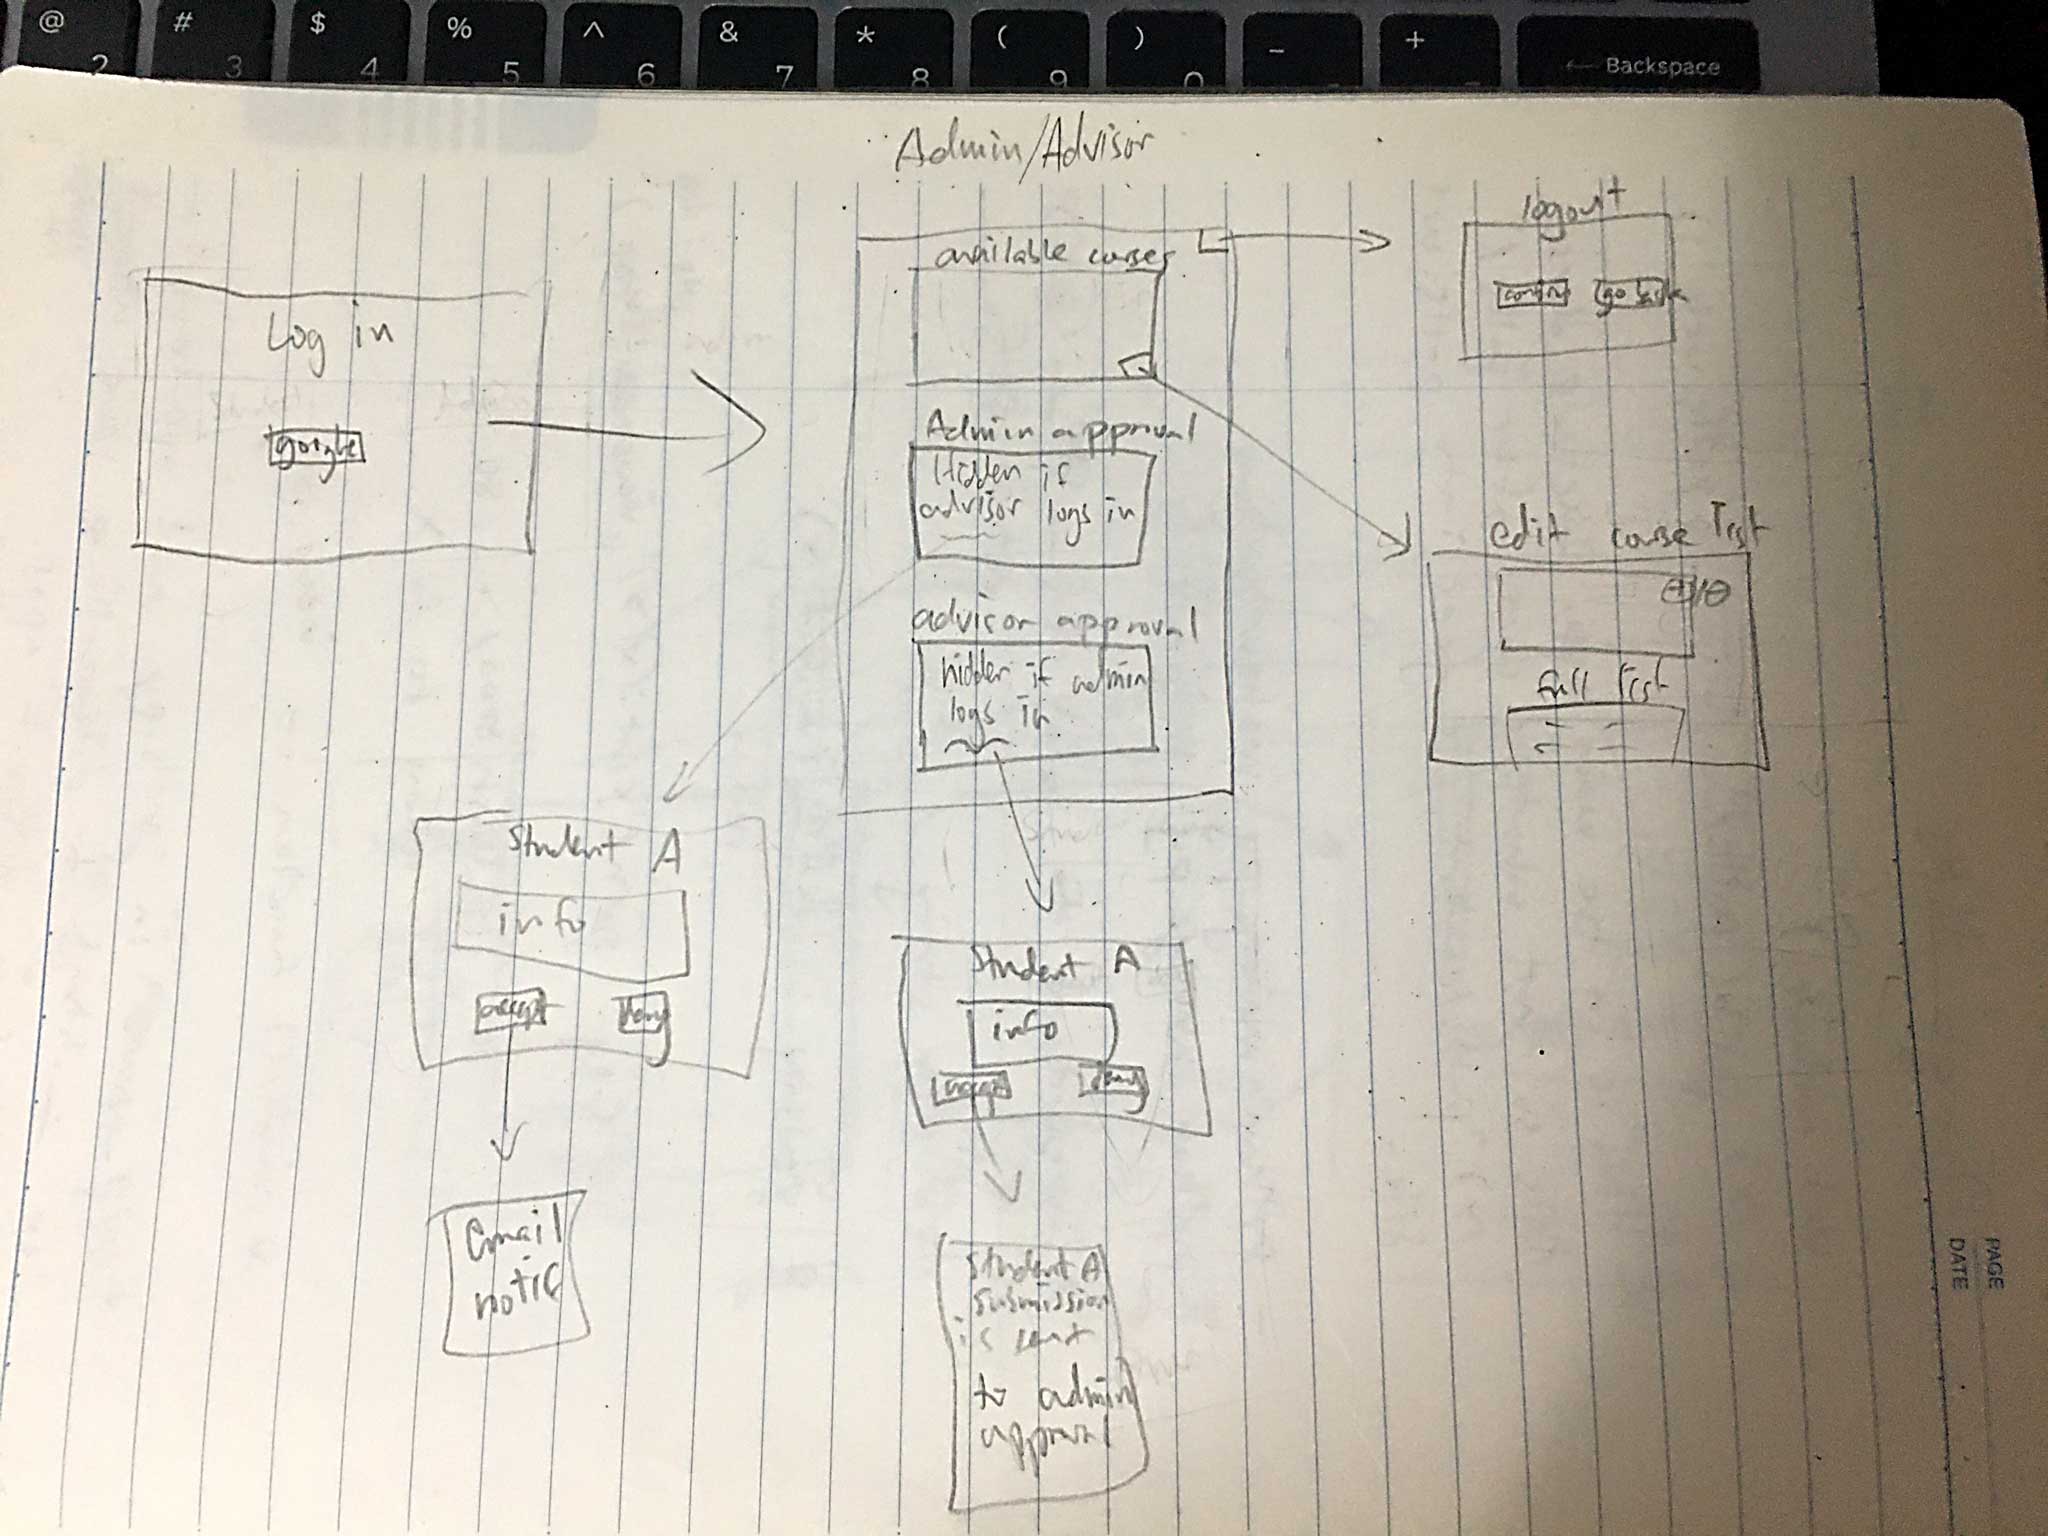 @ 2
# 3
$ 4
% 5
^ 6
& 7
* 8
( 9
) 0
- _
+ _
← Backspace
Admin/Advisor
Log in
google
available courses
Admin approval
Hidden if
advisor logs in
advisor approval
hidden if admin
logs in
logout
confirm go back
edit course list
+/-
full list
Student A
info
accept deny
Email
notif
Student A
info
accept deny
Student A
submission
is sent
to admin
approval
PAGE
DATE